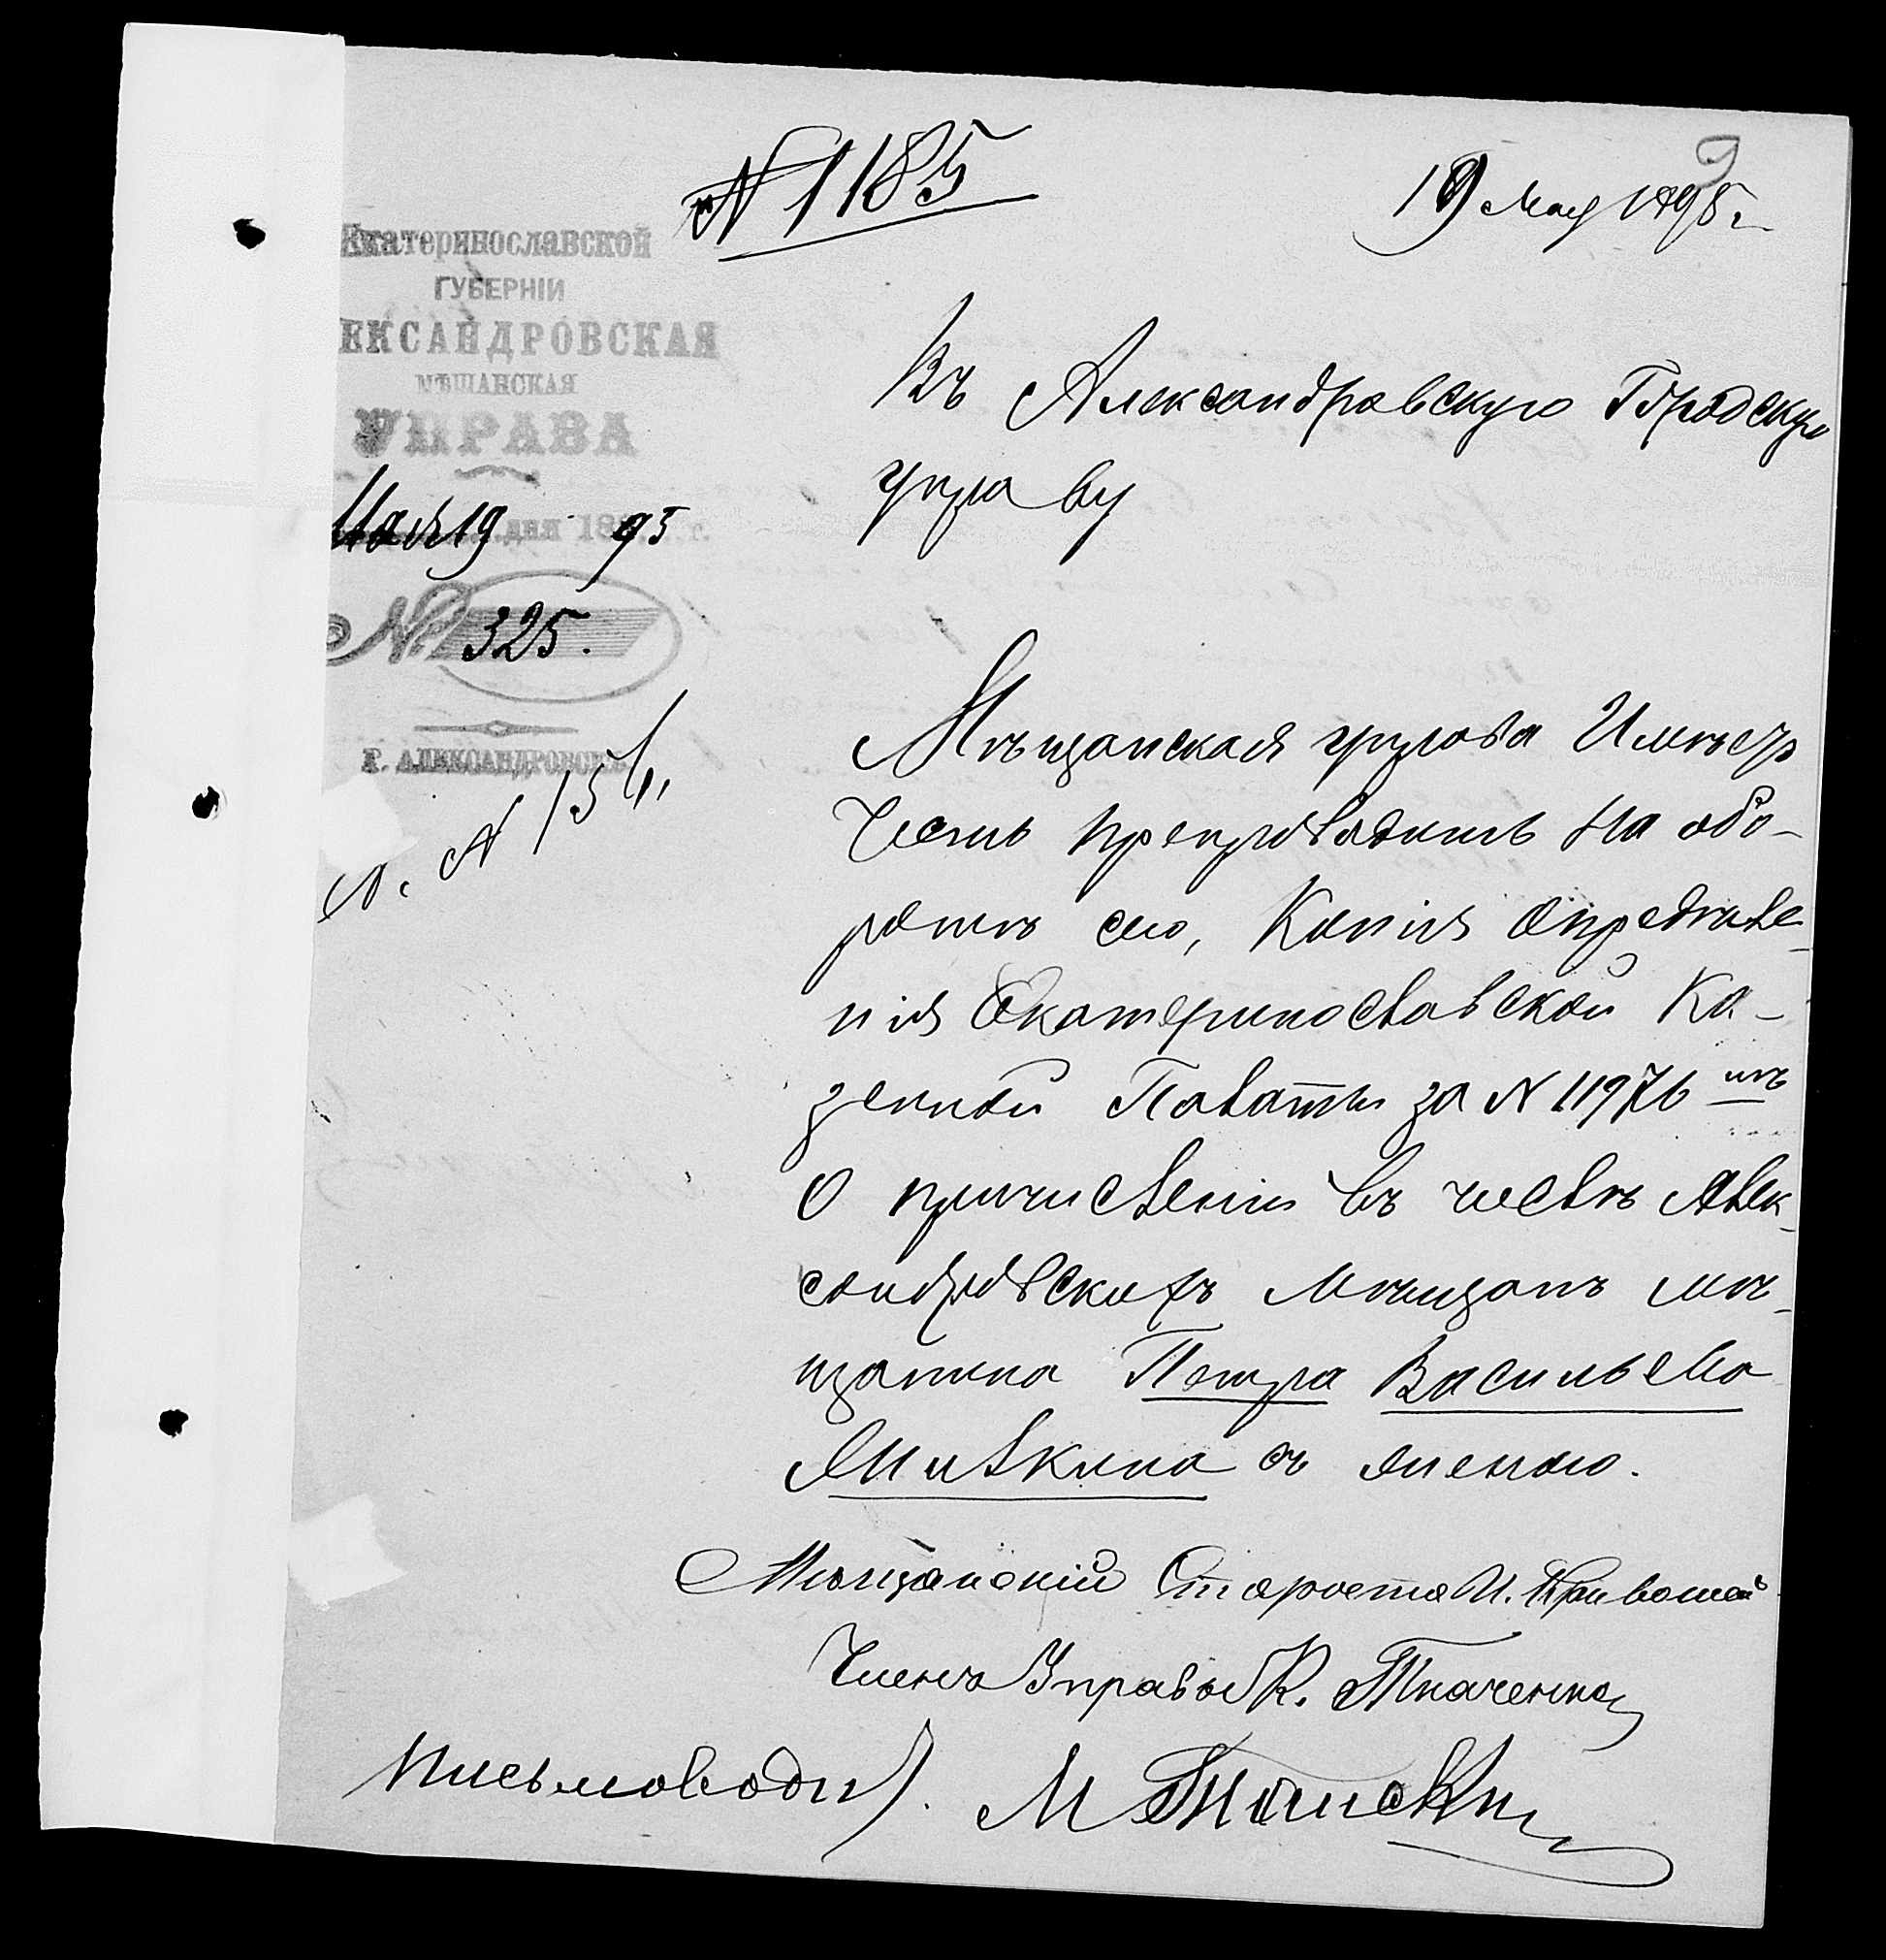 № 1185
19 Мая 1895 г.
Екатеринославской
ГУБЕРНІИ
ЕКСАНДРОВСКАЯ
МѢЩАНСКАЯ
УПРАВА
Мая 19 дня 1895 г.
№ 325.
Г. АЛЕКСАНДРОВСКЪ
Въ Александровскую Городскую
управу
Мѣщанская управа Имѣетъ
Честь препроводить на обо-
ротѣ сего, Копія опредѣле-
нія Екатеринославской Ка-
зенной Палаты за № 11976 мъ
о причисленіи въ число Алек-
сандровскихъ мѣщанъ мѣ-
щанина Петра Васильева
с женою.
Мѣщанскій Староста И.
Членъ Управы К. Ткаченко
Письмовод. М